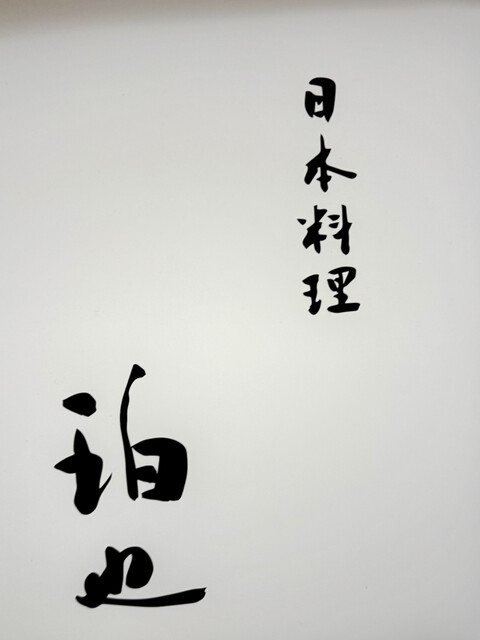 日本料理
珀也